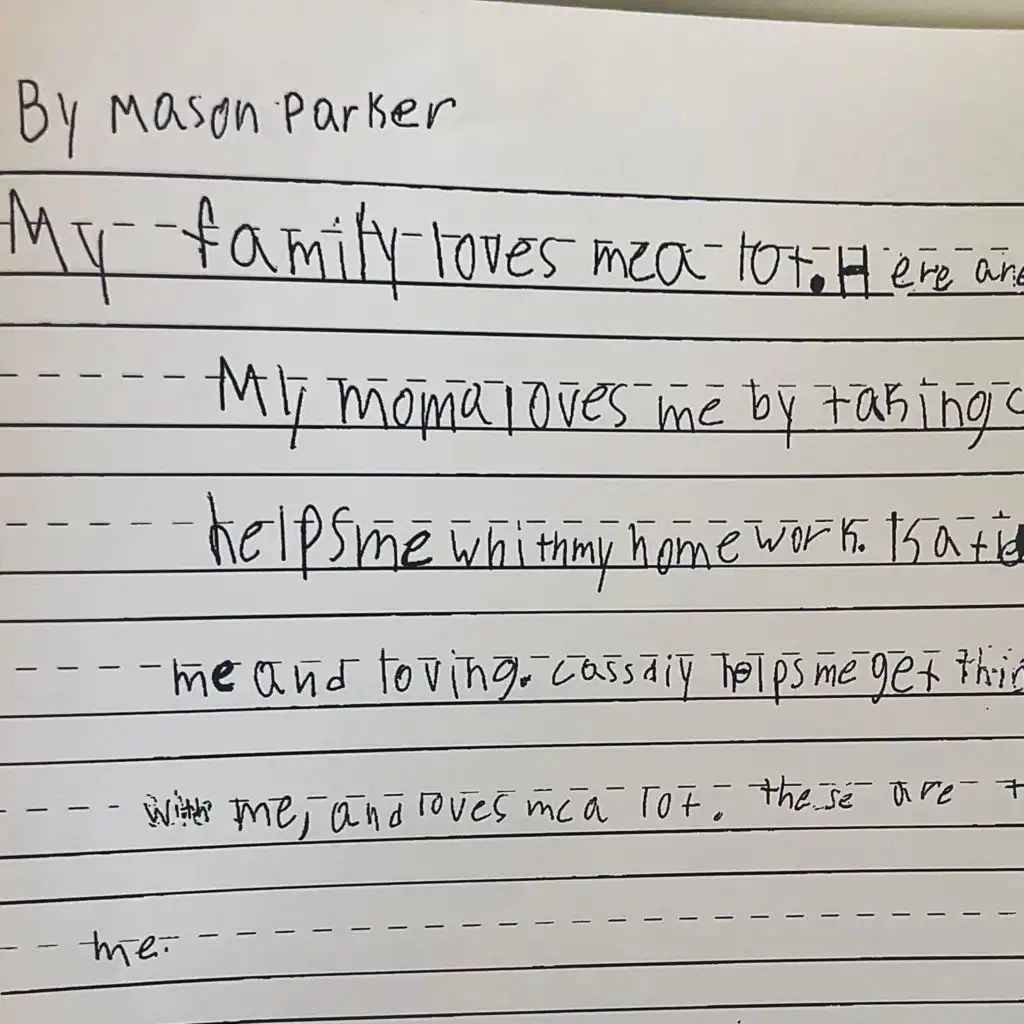 By Mason Parker
My family loves me a lot. Here are
My moma loves me by taking c
helps me whith my home work. Is a
me and loving. cassdiy helps me get
with me, and loves me a lot. these are
me.